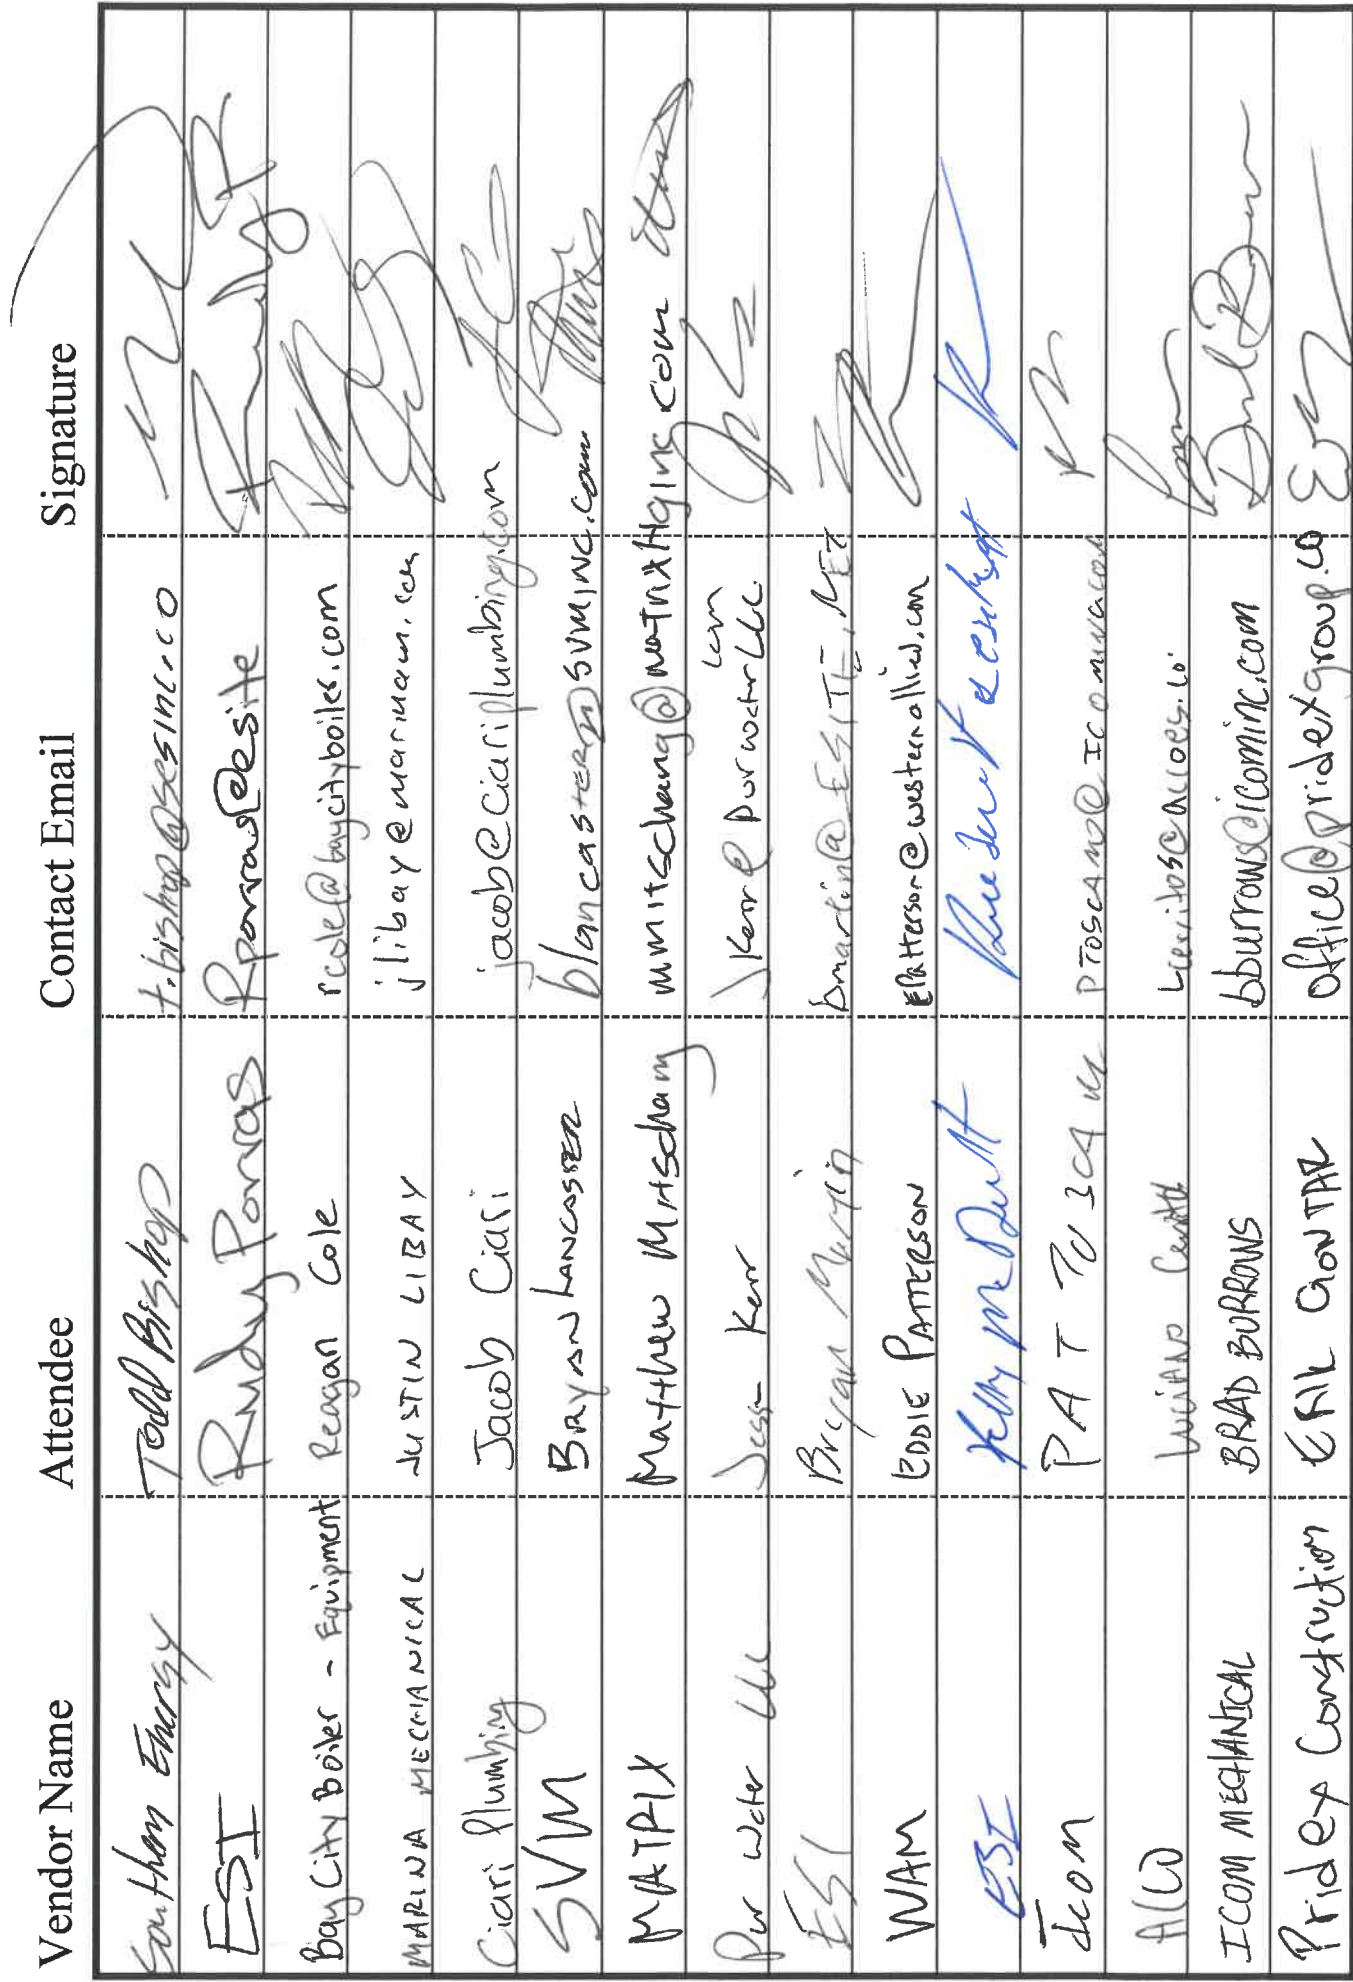 Vendor Name Attendee Contact Email Signature
Southern Energy Todd Bishop t.bishop@sesinc.co
ESI Rudy Porras Rporras@esite
Bay City Boiler - Equipment Reagan Cole rcole@baycityboiler.com
MARINA MECHANICAL JUSTIN LIBAY jlibay@marinam.com
Ciari Plumbing Jacob Ciari jacob@ciariplumbing.com
SVM BRYAN LANCASTER blancaster@SVMINC.com
MATRIX Matthew Mitschang mmitschang@matrixHginc.com
Pur Water LLC Jesse Kerr JKerr@purwaterLLC.com
ESI Bryan Martin bmartin@ESITE.NET
WAM EDDIE PATTERSON EPatterson@westernallied.com
ESI Kelly McDevitt
Icom PAT PTOSCANO@
ALCO LUCIANO
ICOM MECHANICAL BRAD BURROWS bburrows@icominc.com
Pridex Construction ERIK GONTAR office@pridexgroup.co